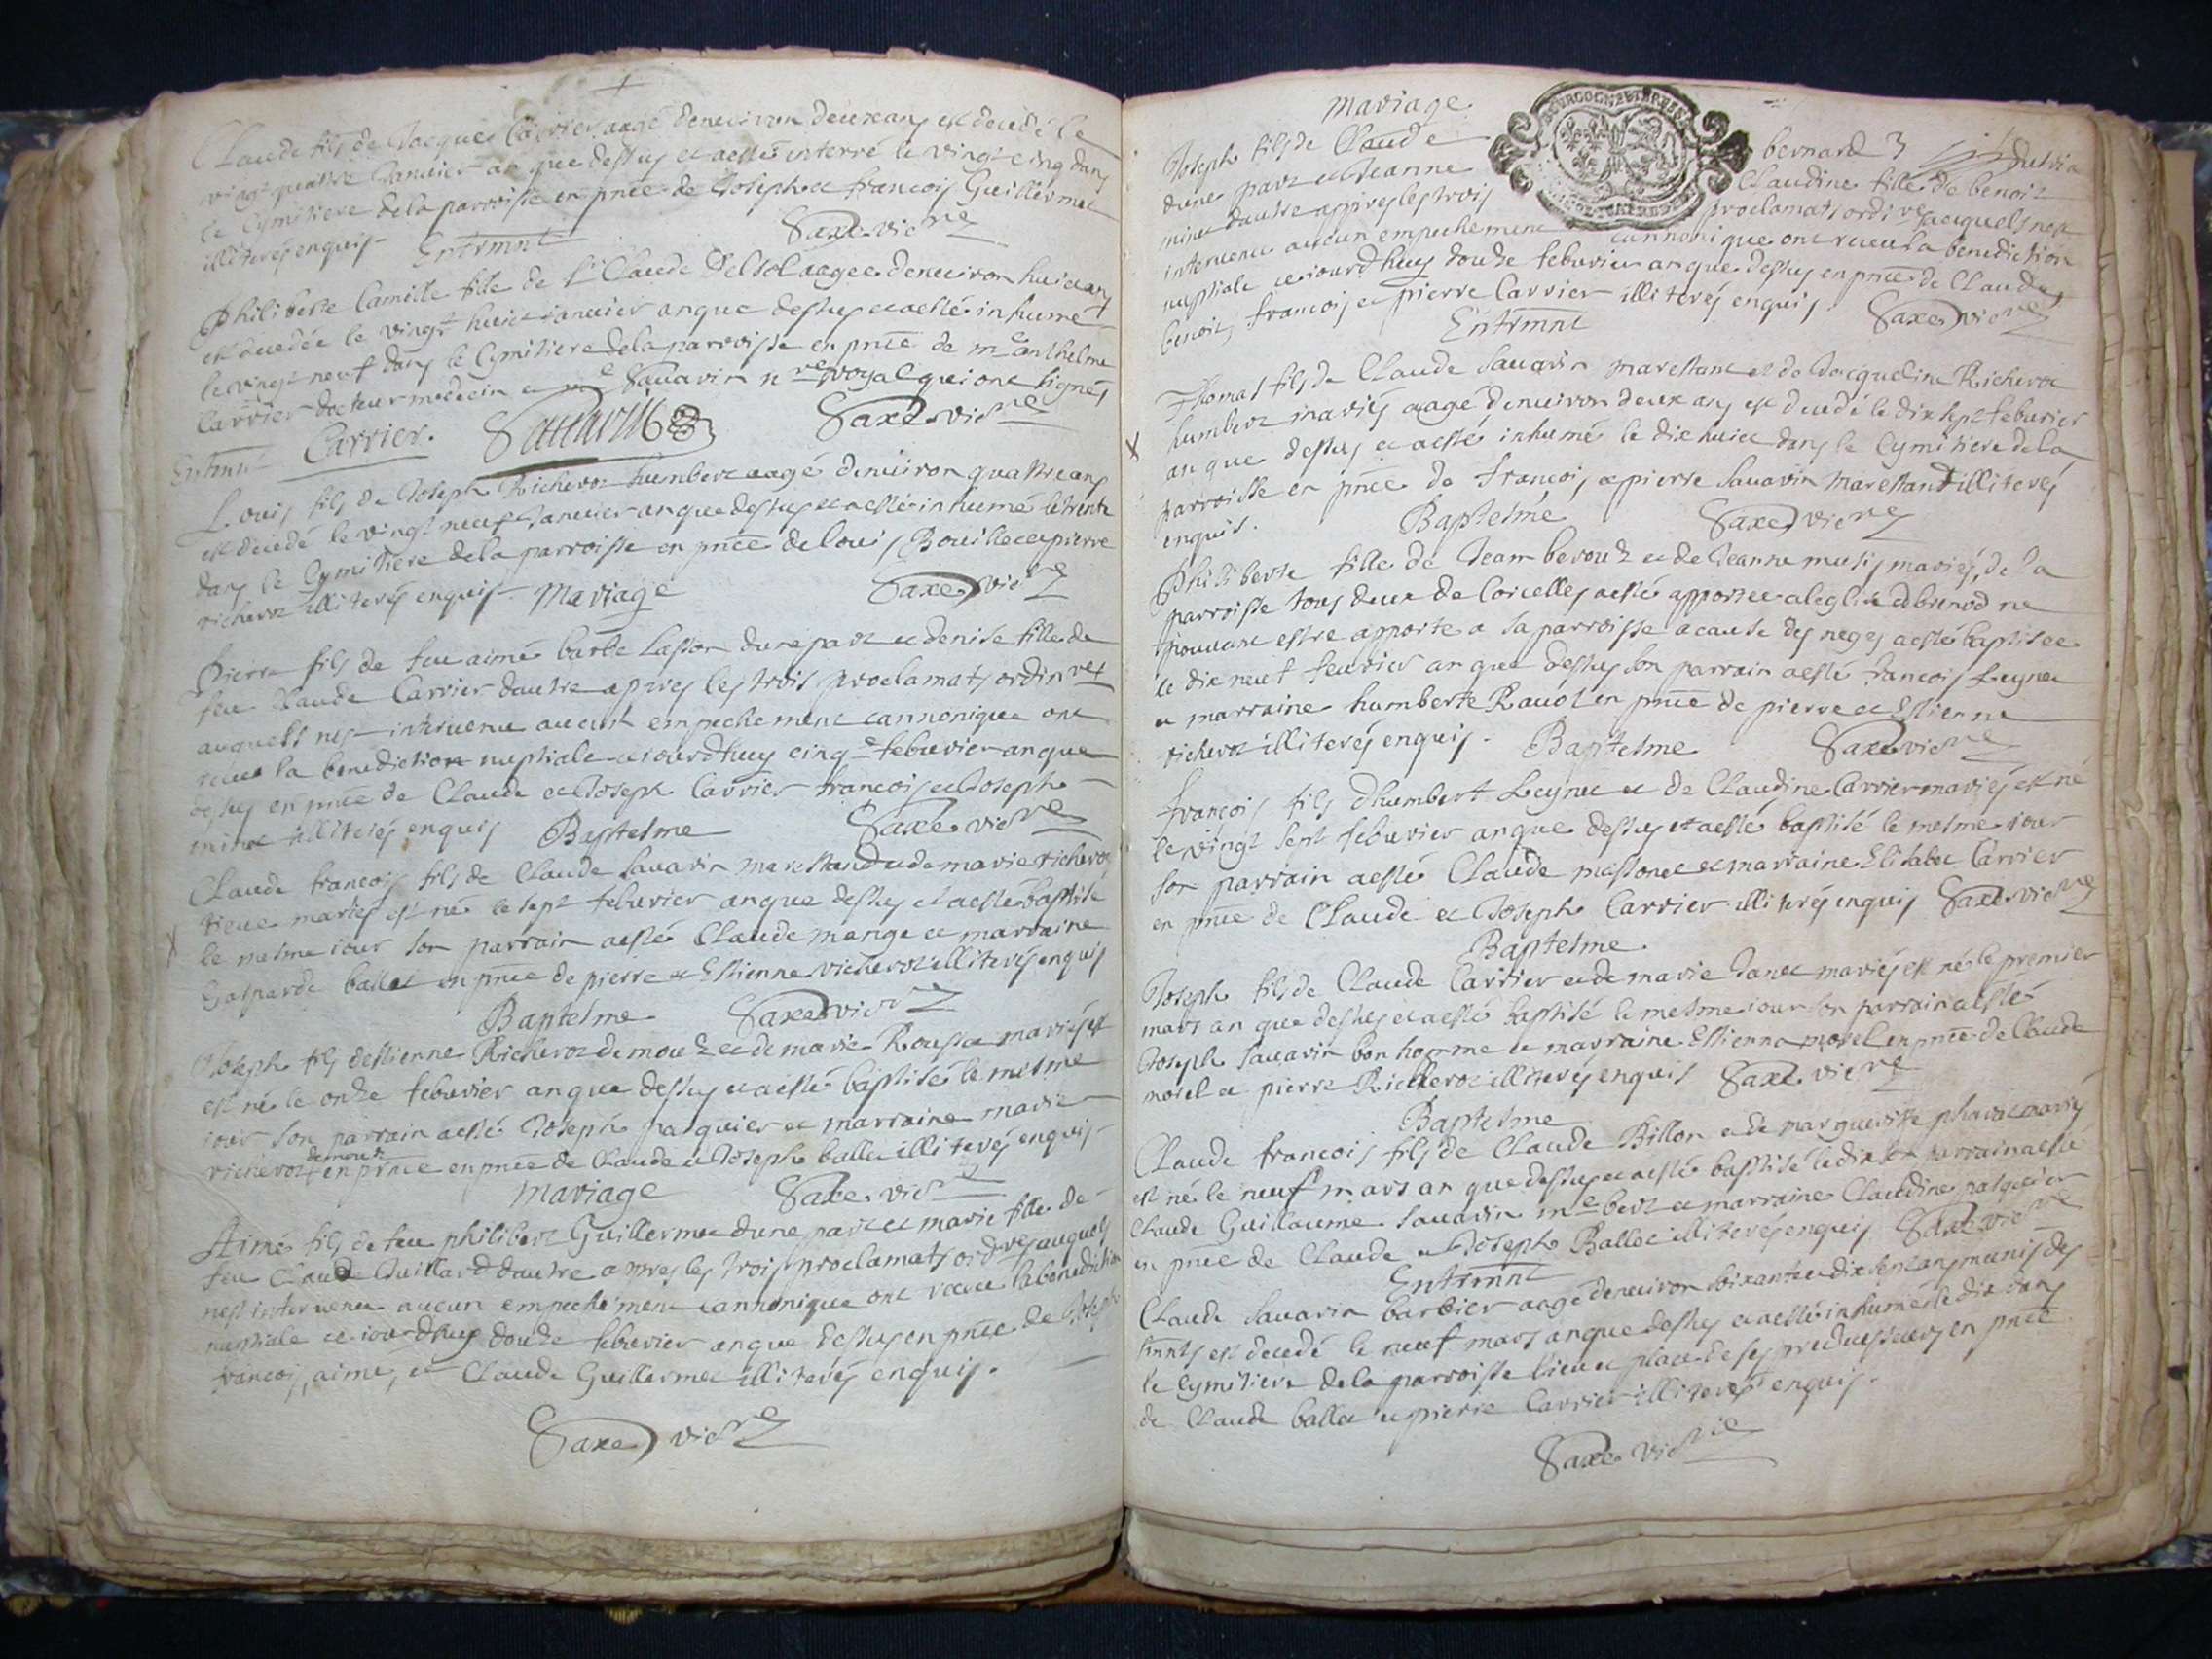 Claude fils de Jacque Carrier aagé denuiron deux ans est decedé le
vingt quattre Januier an que dessus et a esté interré le vingt cinq dans
le Cymitiere de la parroisse en pnce de Joseph et francois Guillermet
illiterés enquis Saxe vicre
Entrmnt
Philiberte Camille fille de Sr Claude Delsol aagee denuiron huict ans
est decedée le vingt huict Januier an que dessus et a esté inhumé
le vingt neuf dans le Cymitiere de la parroisse en pnce de mr anthelme
Carrier docteur medecin et me Sauarin nre royal qui ont signés
Entrmnt Carrier. Sauarin Saxe vicre
Louis fils de Joseph Richerot humbert aagé denuiron quattre ans
est decedé le vingt neuf Januier an que dessus et a esté inhumé le trente
dans le Cymitiere de la parroisse en pnce de louis Bouillet et pierre
richerot illiterés enquis Saxe vicre
Mariage
Pierre fils de feu aimé barbe Lasson dune part et denise fille de
feu Claude Carrier dautre apres les trois proclamats ordinres
auquels nest interuenu aucun empechement cannonique ont
receu la benediction nuptiale ce iourdhuy cinqe feburier an que
dessus en pnce de Claude et Joseph Carrier francois et Joseph
minet illiterés enquis Saxe vicre
Baptesme
Claude francois fils de Claude Sauarin marchand et de marie richerot
vieux mariés est né le sept feburier an que dessus et a esté baptisé
le mesme iour son parrain a esté Claude mange et marraine
Gasparde ballet en pnce de pierre et Estienne richerot illiterés enquis
Baptesme Saxe vicre
Joseph fils destienne Richerot demouz et de marie Rousset mariés
est né le onze feburier an que dessus et a esté baptisé le mesme
iour son parrain a esté Joseph pasquier et marraine marie
richerot demouz en pnce en pnce de Claude et Joseph ballet illiterés enquis
mariage Saxe vicre
Aimé fils de feu philibert Guillermet dune part et marie fille de
feu Claude Juillard dautre apres les trois proclamats ordres auquels
nest interuenu aucun empechement cannonique ont receu la benediction
nuptiale ce iourdhuy douze feburier an que dessus en pnce de Joseph
francois, aimé, et Claude Guillermet illiterés enquis.
Saxe vicre
mariage
Joseph fils de Claude bernard
dune part et Jeanne Claudine fille de benoit
minet dautre apres les trois proclamats ordires auquels nest
interuenu aucun empechement cannonique ont receu la benediction
nuptiale ce iourdhuy douze feburier an que dessus en pnce de Claude
benoit, francois et pierre Carrier illiterés enquis Saxe vicre
Entrmnt
Thomas fils de Claude Sauarin marchand et de Jacqueline Richerot
humbert mariés aagé denuiron deux ans est decedé le dix sept feburier
an que dessus et a esté inhumé le dix huict dans le Cymitiere de la
parroisse en pnce de francois et pierre Sauarin marchand illiterés
enquis. Saxe vicre
Baptesme
Philiberte fille de Jean berouz et de Jeanne musis mariés, de la
parroisse tous deux de Corcelles a esté apportee a leglise de brenod ne
pouuant estre apporte a sa parroisse a cause des neges a esté baptisee
le dix neuf feurier an que dessus son parrain a esté francois Leyne
et marraine humberte Rauot en pnce de pierre et Estienne
richerot illiterés enquis. Baptesme Saxe vicre
francois fils dhumbert Leyne et de Claudine Carrier mariés est né
le vingt sept feburier an que dessus et a esté baptisé le mesme iour
son parrain a esté Claude massonet et marraine Elisabet Carrier
en pnce de Claude et Joseph Carrier illiterés enquis Saxe vicre
Baptesme
Joseph fils de Claude Carrier et de marie Janet mariés est né le premier
mars an que dessus et a esté baptisé le mesme iour son parrain a esté
Joseph Sauarin bonhomme et marraine Estienna morel en pnce de Claude
morel et pierre Richerot illiterés enquis Saxe vicre
Baptesme
Claude francois fils de Claude Billon et de marguerite mariés
est né le neuf mars an que dessus et a esté baptisé le dix son parrain a esté
Claude Guillaume Sauarin me bert et marraine Claudine pasquier
en pnce de Claude et Joseph Ballet illiterés enquis Saxe vicre
Entrmnt
Claude Sauarin barbier aagé denuiron soixante et dix sept ans munis des
srmnts est decedé le neuf mars an que dessus et a esté inhumé le dix dans
le Cymitiere de la parroisse lieu et place de ses predecesseurs en pnce
de Claude ballet et pierre Carrier illiterés enquis.
Saxe vicre